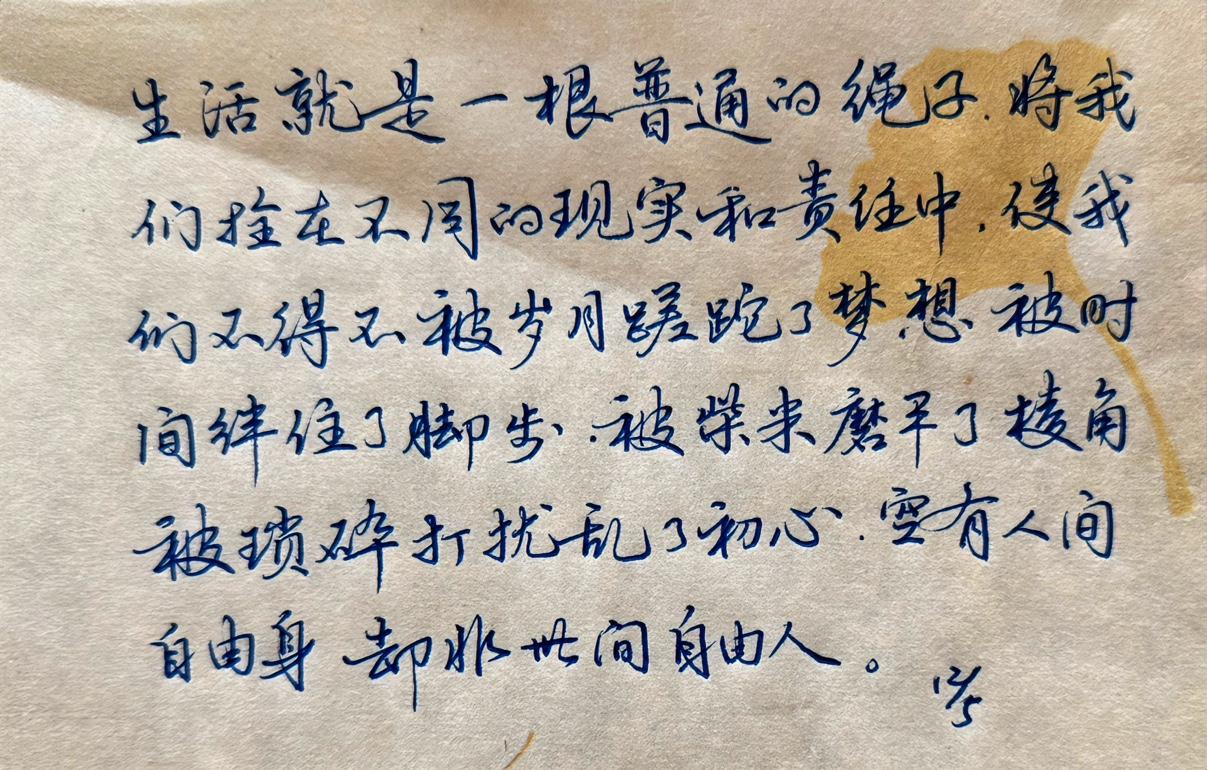 生活就是一根普通的绳子.将我
们拴在不同的现实和责任中.使我
们不得不被岁月蹉跎了梦想 被时
间绊住了脚步.被柴米磨平了棱角
被琐碎打扰乱了初心.空有人间
自由身 却非世间自由人。
12/5